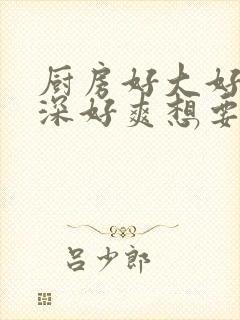 厨房好大好
深好爽想要
吕少郎